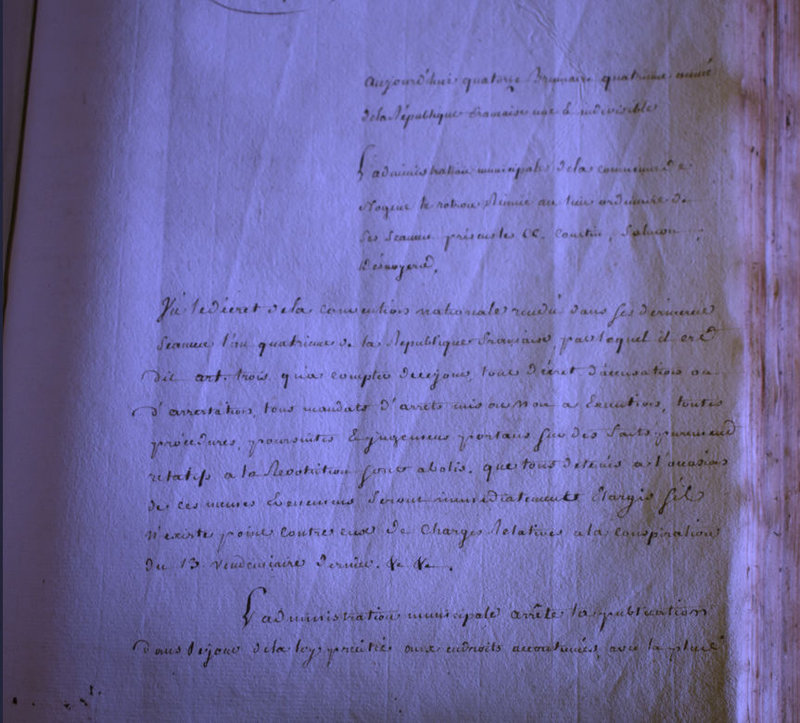 Aujourd'hui quatorze Brumaire quatrieme année
de la République francaise une & indivisible
L'administration municipale de la commune de
Nogent le rotrou Reunie au lieu ordinaire de
ses seances présents les CC. Courtin, Salmon,
Desnoyers,
Vu le décret de la convention nationale rendu dans ses dernieres
seances l'an quatrieme de la République francaise par lequel il est
dit art. trois qu'a compter de ce jour, tout décret d'accusation ou
d'arrestation, tous mandats d'arrets mis ou non a Execution, toutes
procedures, poursuites & jugemens portans sur des faits purement
relatifs a la Revolution sont abolis. que tous detenus a l'occasion
de ces memes Evenemens seront immediatement Elargis s'il
n'existe point contre eux de charges Relatives a la conspiration
du 13 vendemiaire dernier. &c &c.
L'administration municipale arrête la publication
dans le jour de la loy précitée aux endroits accoutumés, avec la plus